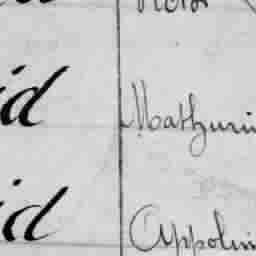 id Mathurin
id Appolin